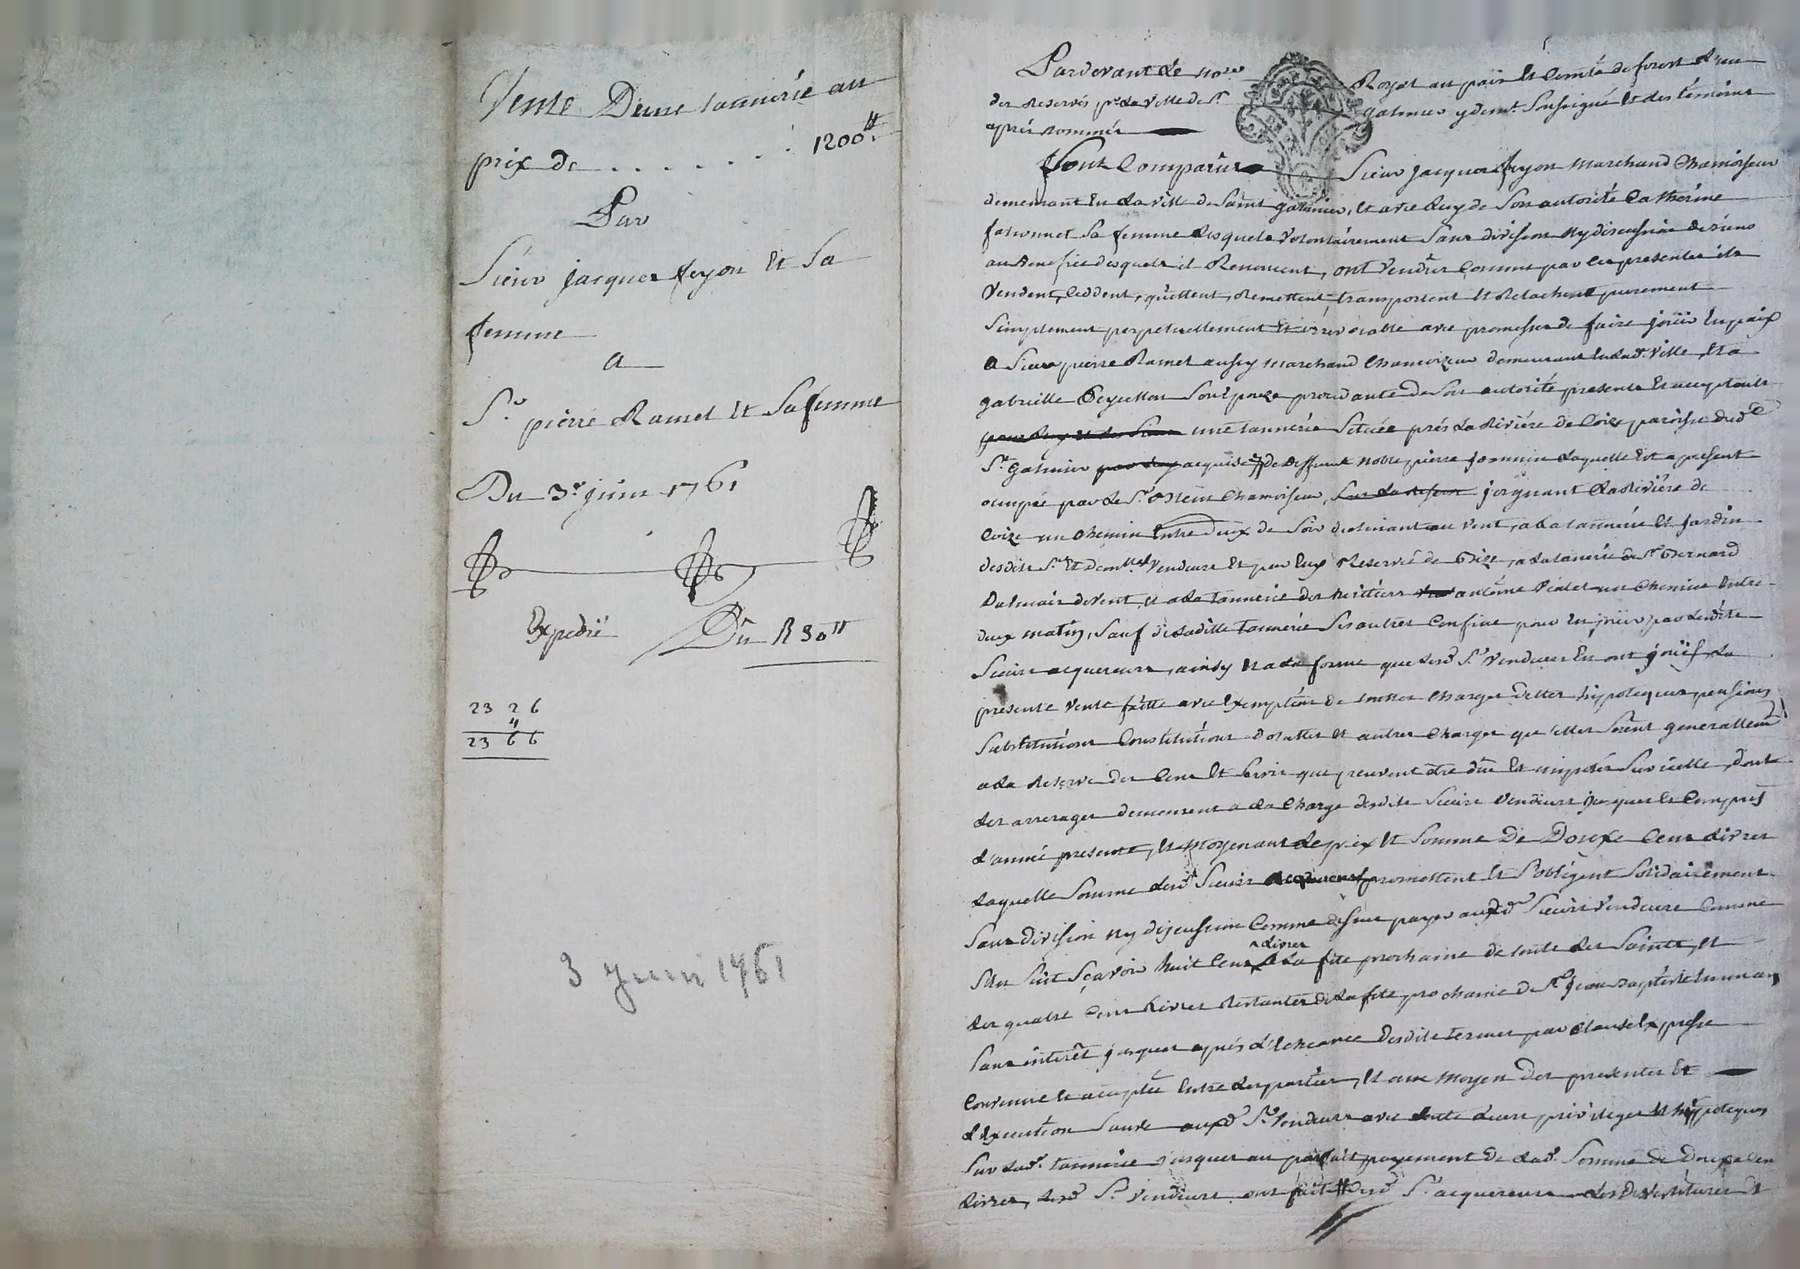 Vente D'une tannerie au
prix de . . . . . . . 1200ᵗᵗ.
Par
Sieur jacques feyon Et Sa
femme
a
Sʳ. pierre Ramel Et Sa femme
Du 3ᵉ juin 1761
Expedié Du R 30ᵗᵗ
23 26
4
23 66
3 Juin 1761
Pardevant Le noʳᵉ Royal au païs Et Comté de forest L'un
des Reservés pʳ. La Ville de Sᵗ. galmier ydemᵗ. Soussigné Et des témoins
après nommés
Sont Comparus Sieur jacques feyon Marchand Chamoiseur
demeurant En La ville de Saint galmier, Et avec Luy de Son autorité Catherine
sa femme Lesquels Volontairement Sans division Ny discussion
au Benefice desquels il Renoncent, ont Vendus Comme par Ces presentes ils
Vendent, Ceddent, quittent, Remettent transportent Et Relachent purement
Simplement perpetuellement Et irrévocable avec promesse de faire joüir En paix
a Sieur pierre Ramel aussy Marchand Chamoizeur demeurant En Ladᵉ. Ville, Et a
gabrielle Peyrellon Son Epouze procedante De Son autorité presents Et acceptants
une tannerie Située près La Riviére de Coize paroisse dudᵗ
Sᵗ. Galmier acquise de Deffunt Noble pierre jommin Laquelle Est a present
occupée par Le Sʳ. Chamoiseur, joignant La Riviére de
Coize un Chemin Entre deux de Soir declinant au Vent, a La tannerie Et jardin
desdits Sʳ. Et Demˡˡᵉ Vendeurs Et par Eux Reservé de Bize, a La tanerie du Sʳ Bernard
de Vent, Et a La tannerie des héritiers antoine Vialet un Chemin Entre
deux matin, Sauf de Ladite tannerie Ses autres Confins pour En joüir par Lesdits
Sieurs acquereurs, ainsy Et a La forme que Lesdᵗˢ Sʳ. Vendeurs En ont joüis, La
presente Vente faitte avec Exemption de touttes Charges dettes hypoteques pensions
Substitutions Constitutions dotalles Et autres Charges qu'elles Soient generallemᵗ
a La Reserve des Cens Et Servis que peuvent être dûs Et imposés Sur icelle, dont
Les arrerages demeurent a La Charge desdits Sieurs Vendeurs jusques Et Compris
L'année presente, Et Moyenant Le prix Et Somme De Douze Cent Livres
Laquelle Somme lesdᵗˢ Sieurs acquereurs promettent Et S'obligent Solidairement
Sans division Ny discussion Comme dessus payer auxdᵗˢ Sieurs Vendeurs Comme
S'En Suit Sçavoir huit Cent Livres a La fête prochaine de touts Les Saints, Et
Les quatre Cent Livres Restantes de La fête prochaine de Sᵗ. jean Baptiste En un an
Sans interêt jusques après L'Echeance Desdits termes par Clause Expresse
Convenue Et acceptée Entre Les parties, Et au Moyen Des presentes Et
L'Execution Sauve auxdᵗˢ Sʳ. Vendeurs avec Leurs privileges Et hÿpoteques
Sur Ladᵉ. tannerie jusques au parfait payement De Ladᵉ. Somme De Douze Cen
Livres, Lesdᵗˢ Sʳ. Vendeurs ont fait Sʳ. acquereurs Les Devestitures Et